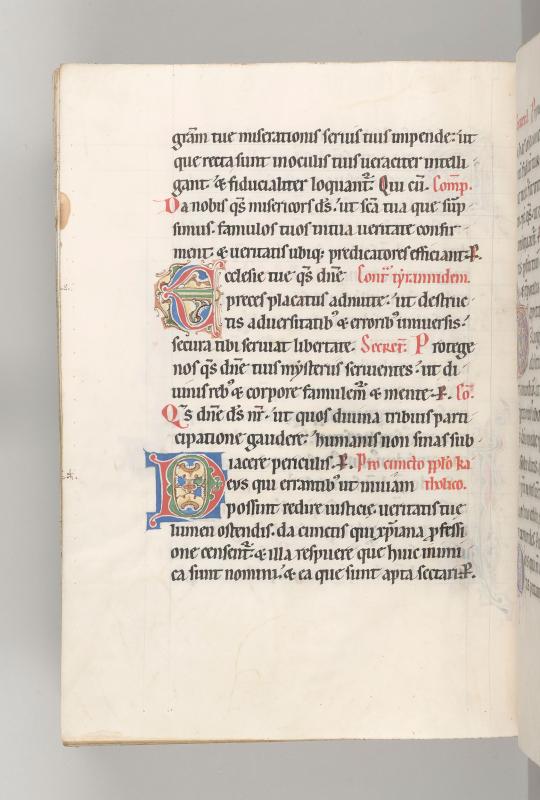 gr̄am tue miserationis seruis tuis impende: ut
que recta sunt in oculis tuis ueraciter intelli
gant: & fiducialiter loquant᷑. Qui cū. Comp̄.
Da nobis q̄s misericors d̄s: ut sc̄a tua que sūp
simus: famulos tuos in tua ueritate confir
ment: & ueritatis ubiq; predicatores efficiant: P.
Ecclesie tue q̄s dn̄e Cont᷑ tyrannidem.
preces placatus admitte: ut destruc
tis aduersitatib; & errorib; uniuersis:
secura tibi seruiat libertate. Secret̄. Protege
nos q̄s dn̄e tuis mysteriis seruientes: ut di
uinis reb; & corpore famulem᷑ & mente: P. Cō.
Q̄s dn̄e d̄s nr̄: ut quos diuina tribuis parti
cipatione gaudere: humanis non sinas sub
iacere periculis. P. Pro cuncto pp̄lo ka
Deus qui errantib; ut in uiam tholico.
possint redire iusticie: ueritatis tue
lumen ostendis: da cunctis qui xp̄iana p̄fessi
one censent᷑: & illa respuere que huic inimi
ca sunt nomini: & ea que sunt apta sectari: P.